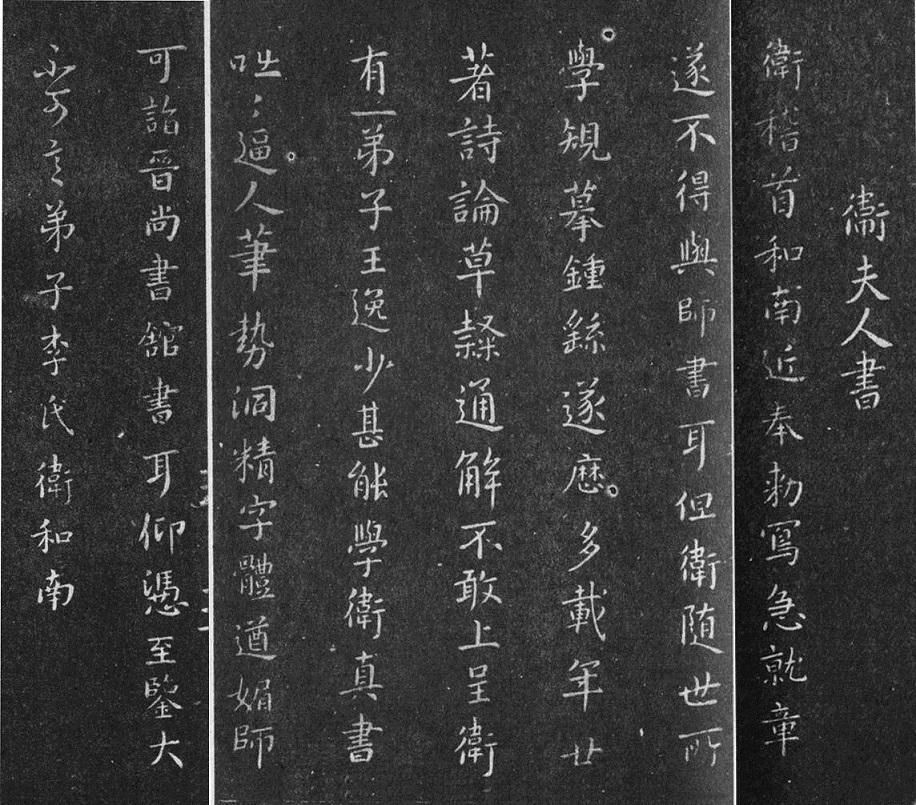 衞夫人書
衛稽首和南近奉勑寫急就章
遂不得與師書耳但衛随世所
學規摹鍾繇遂歷多載年廿
著詩論草隸通解不敢上呈衛
有一弟子王逸少甚能學衛真書
咄〻逼人筆勢洞精字體遒媚師
可詣晉尚書館書耳仰憑至鑒大
不可言弟子李氏衛和南